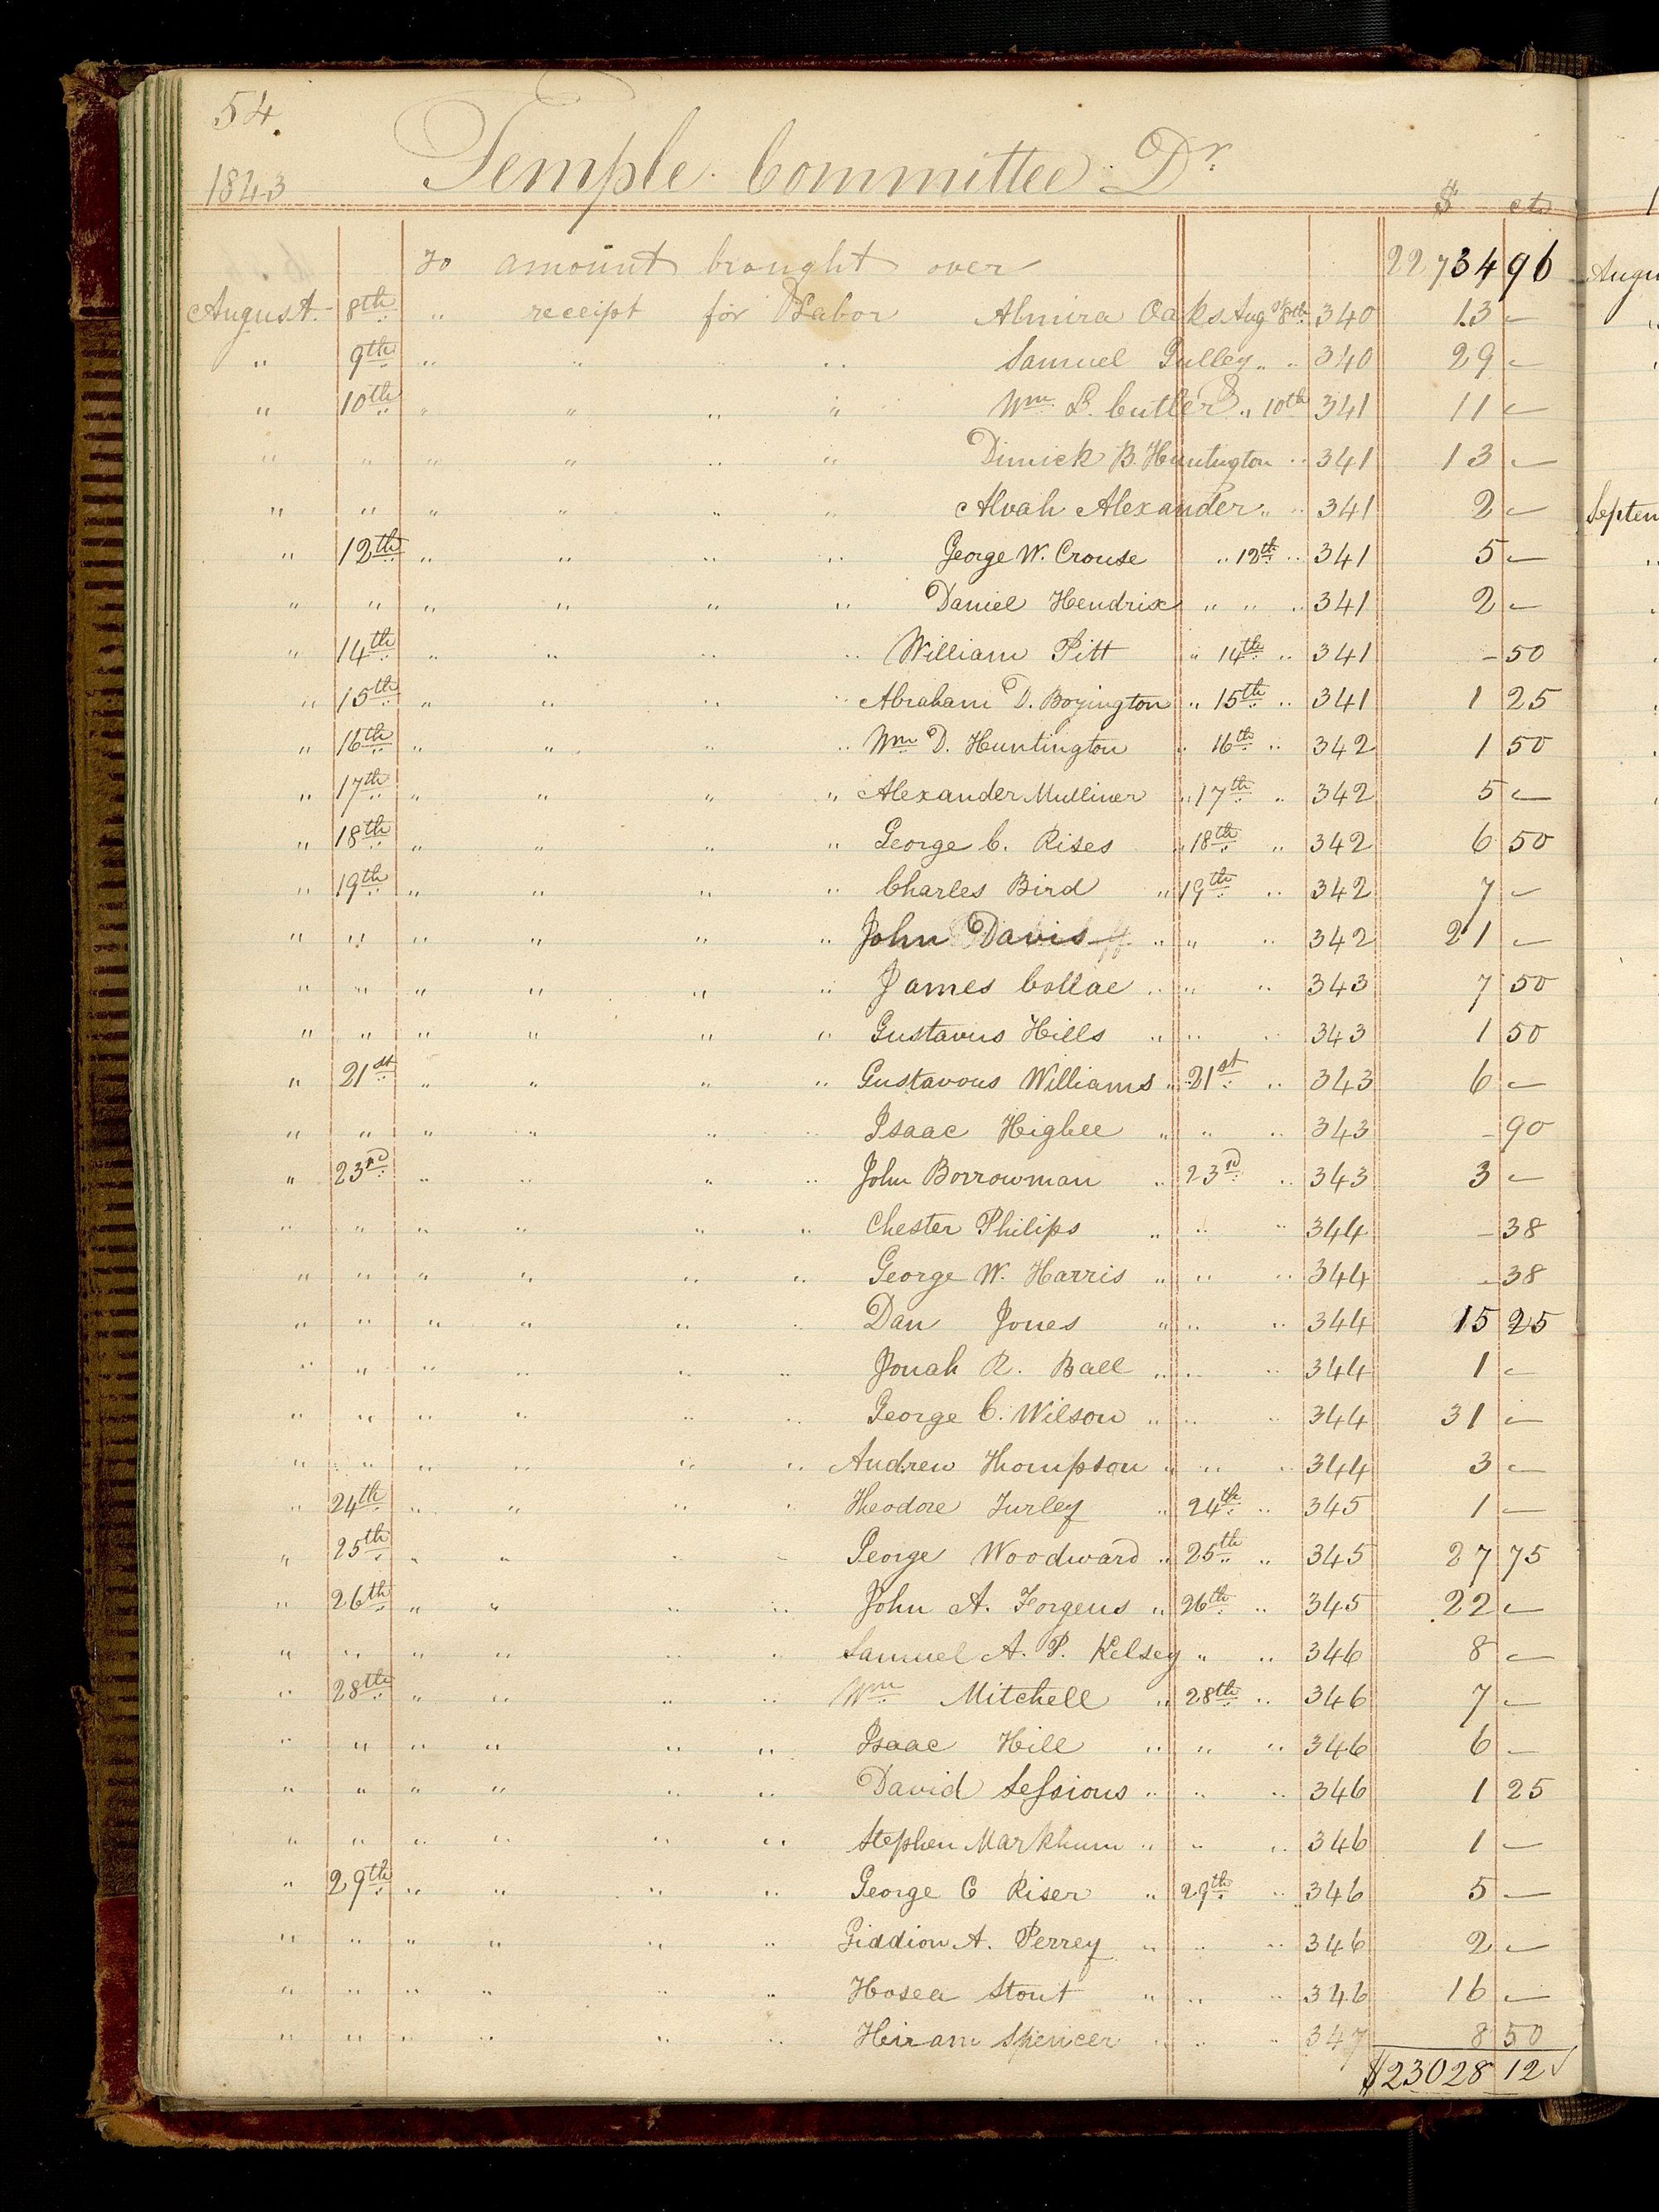 54.
1843 Temple Committee Dr
$ cts
To amount brought over 22734 96
August. 8th " receipt for Labor Almira Oaks Aug 8th 340 13 —
" 9th " " " " Samuel Gulley " " 340 29 —
" 10th " " " " Wm L. Cutler " 10th 341 11 —
" " " " " " Dimick B. Huntington " 341 13 —
" " " " " " Alvah Alexander " " 341 2 —
" 12th " " " " George W. Crouse " 12th " 341 5 —
" " " " " " Daniel Hendrix " " " 341 2 —
" 14th " " " " William Pitt " 14th " 341 – 50
" 15th " " " " Abraham D. Boyington " 15th " 341 1 25
" 16th " " " " Wm D. Huntington " 16th " 342 1 50
" 17th " " " " Alexander Mulliner " 17th " 342 5 —
" 18th " " " " George C. Rises " 18th " 342 6 50
" 19th " " " " Charles Bird " 19th " 342 7 —
" " " " " " John Davis " " " 342 21 —
" " " " " " James Collae " " " 343 7 50
" " " " " " Gustavus Hills " " " 343 1 50
" 21st " " " " Gustavous Williams " 21st " 343 6 —
" " " " " " Isaac Higbee " " " 343 – 90
" 23rd " " " " John Borrowman " 23rd " 343 3 —
" " " " " " Chester Philips " " " 344 – 38
" " " " " " George W. Harris " " " 344 – 38
" " " " " " Dan Jones " " " 344 15 25
" " " " " " Jonah R. Ball " " " 344 1 —
" " " " " " George C. Wilson " " " 344 31 —
" " " " " " Andrew Thompson " " " 344 3 —
" 24th " " " " Theodore Turley " 24th " 345 1 —
" 25th " " " " George Woodward " 25th " 345 27 75
" 26th " " " " John A. Forgeus " 26th " 345 22 —
" " " " " " Samuel A. P. Kelsey " " 346 8 —
" 28th " " " " Wm Mitchell " 28th " 346 7 —
" " " " " " Isaac Hill " " " 346 6 —
" " " " " " David Sessions " " " 346 1 25
" " " " " " Stephen Markhum " " " 346 1 —
" 29th " " " " George C Riser " 29th " 346 5 —
" " " " " " Giddion A. Perrey " " " 346 2 —
" " " " " " Hosea Stout " " " 346 16 —
" " " " " " Heiram Spencer " " " 347 8 50
$23028 12
Augu
Septem